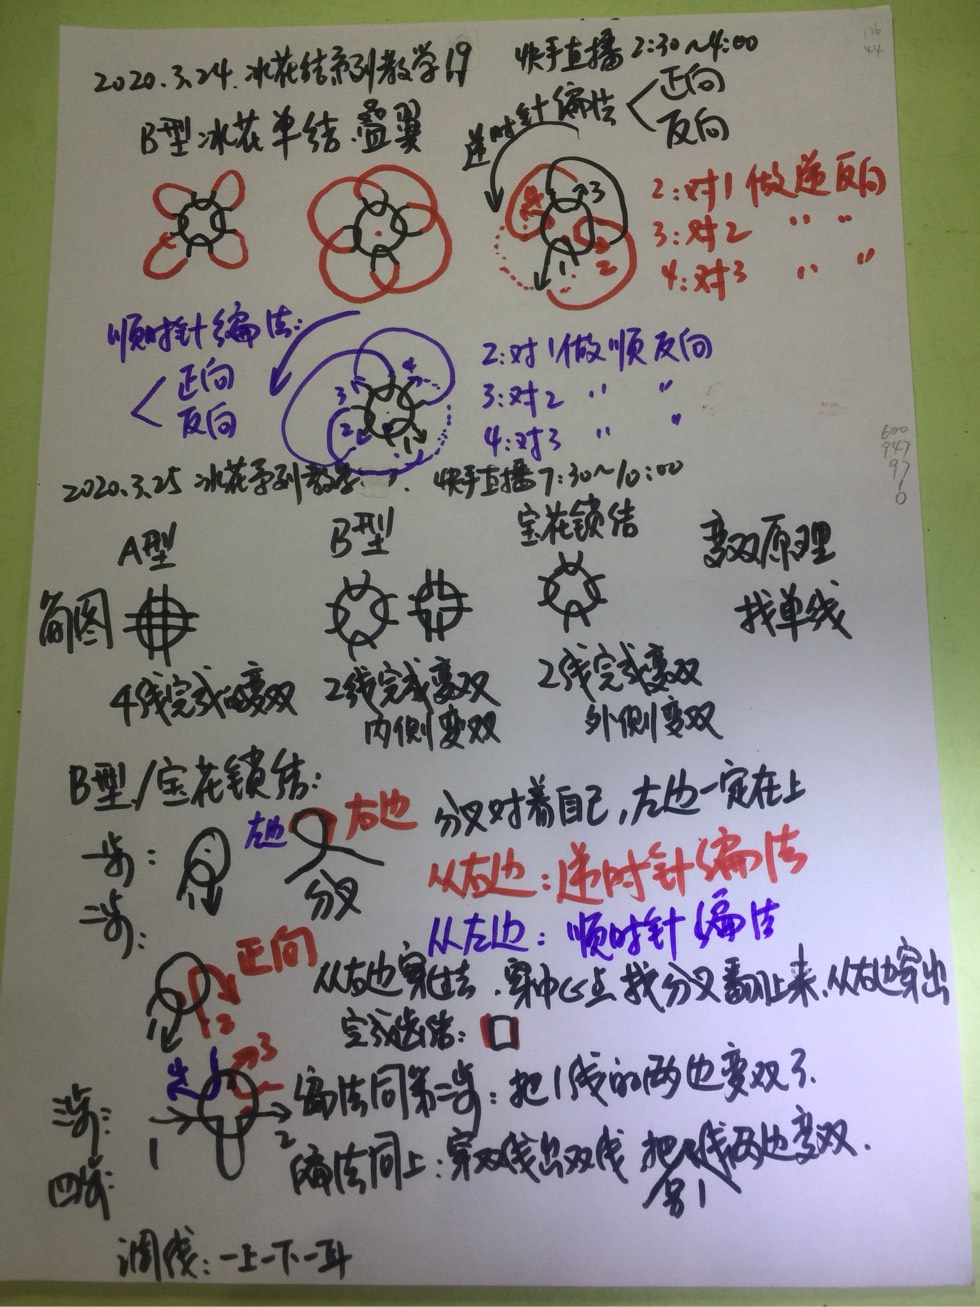 2020.3.24.冰花结系列教学19 快手直播2:30~4:00
B型冰花单结.叠翼 逆时针编法 正向
反向
2:对1做逆反向
3:对2 〃 〃
4:对3 〃 〃
1 2 3 4
顺时针编法:
正向
反向
2:对1做顺反向
3:对2 〃 〃
4:对3 〃 〃
1 2 3 4
2020.3.25 冰花系列教学 快手直播7:30~10:00
A型 B型 宝花锁结 变双原理
简图 找单线
4线完成的变双 2线完成变双 2线完成变双
内侧变双 外侧变双
B型/宝花锁结:
一步: 左边 右边 分叉对着自己,左边一定在上
分叉 从右边:逆时针编法
二步: 从左边:顺时针编法
正向 从右边穿进去.穿中心点 找分叉翻上来.从右边穿出
1 2 完成当结:口
三步: 1 2 3 4 编法同第二步:把1线的两边变双了.
四步: 编法同上:穿双线出双线 把 线两边变双.
另1
调线:一上一下一耳